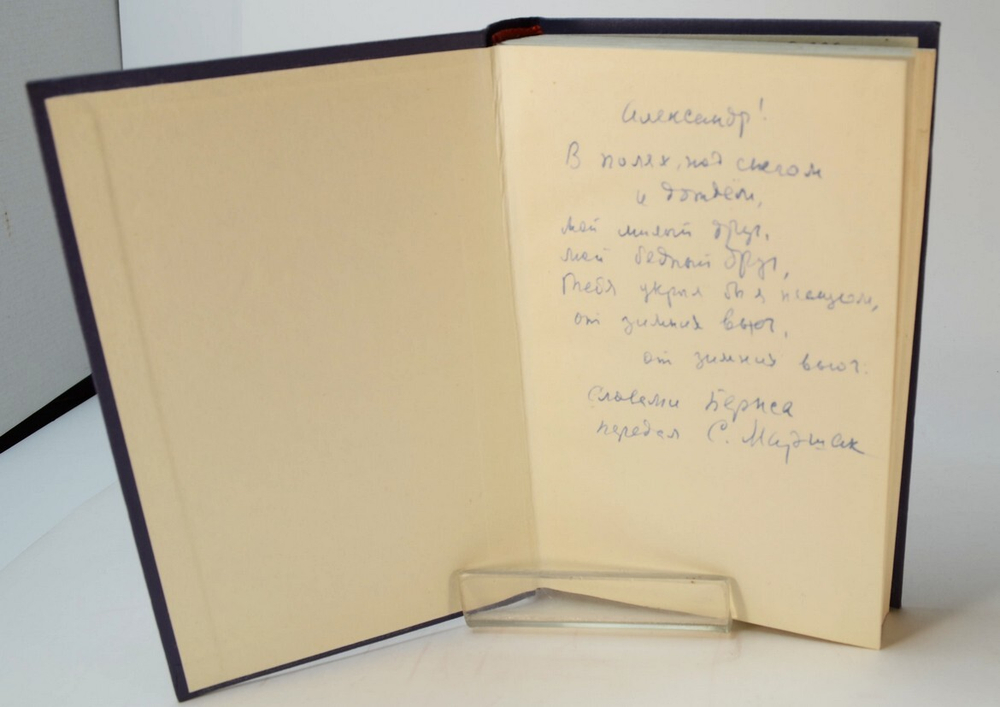 Александр!
В полях, под снегом
и дождём,
мой милый друг,
мой бедный друг,
Тебя укрыл бы я плащом,
от зимних вьюг,
от зимних вьюг.
Словами Бернса
передал С. Маршак